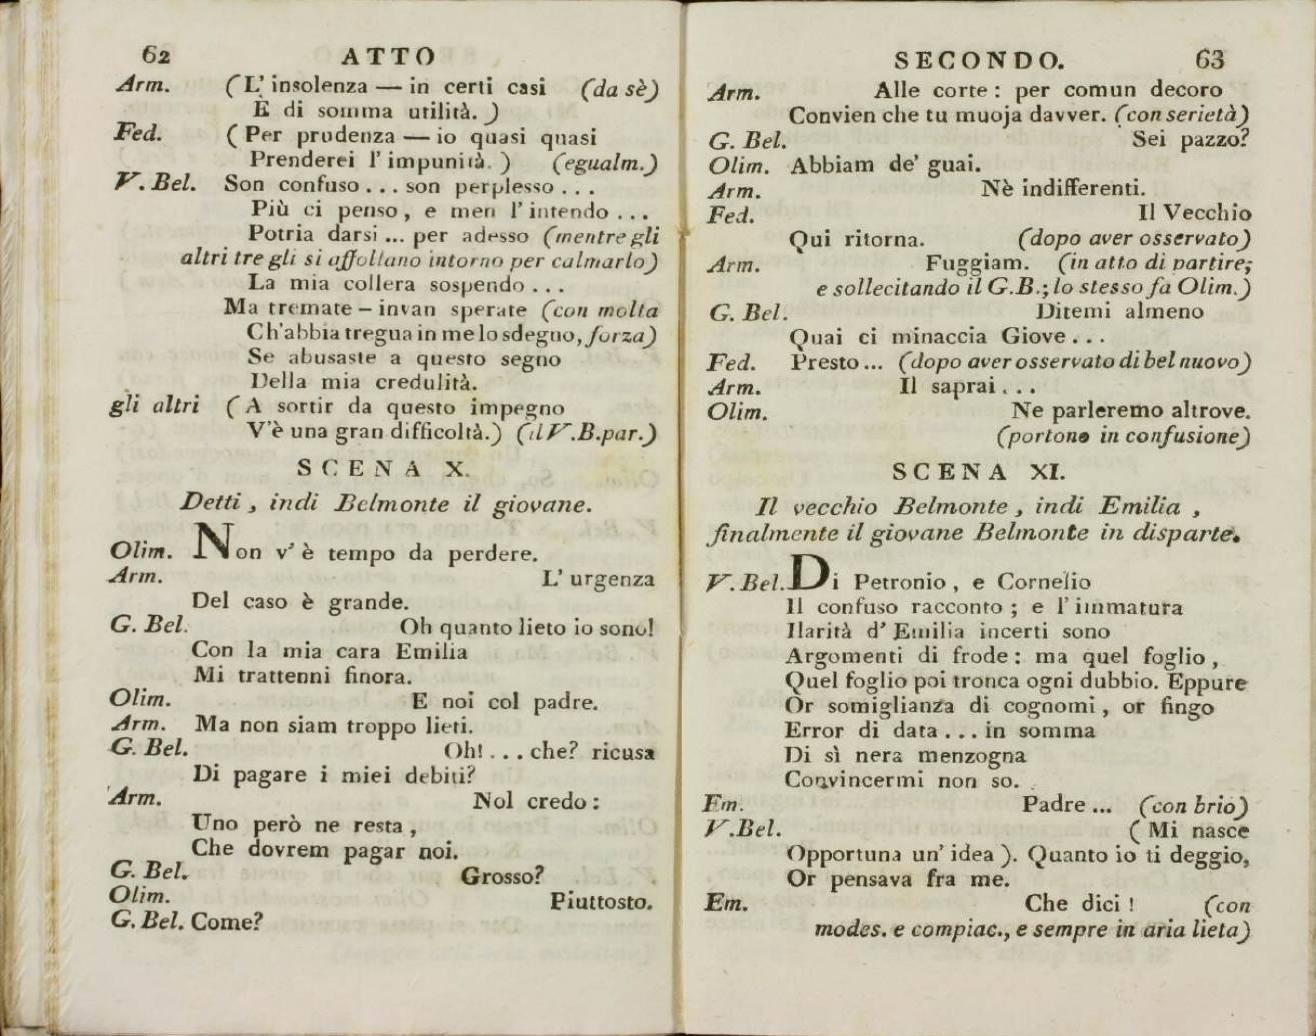 62 ATTO
Arm. (L' insolenza — in certi casi (da sè)
È di somma utilità.)
Fed. (Per prudenza — io quasi quasi
Prenderei l' impunità.) (egualm.)
V. Bel. Son confuso... son perplesso...
Più ci penso, e men l' intendo...
Potria darsi... per adesso (mentre gli
altri tre gli si affollano intorno per calmarlo)
La mia collera sospendo...
Ma tremate – invan sperate (con molta
Ch'abbia tregua in me lo sdegno, forza)
Se abusaste a questo segno
Della mia credulità.
gli altri (A sortir da questo impegno
V'è una gran difficoltà.) (il V.B.par.)
SCENA X.
Detti, indi Belmonte il giovane.
Olim. Non v' è tempo da perdere.
Arm. L' urgenza
Del caso è grande.
G. Bel. Oh quanto lieto io sono!
Con la mia cara Emilia
Mi trattenni finora.
Olim. E noi col padre.
Arm. Ma non siam troppo lieti.
G. Bel. Oh!... che? ricusa
Di pagare i miei debiti?
Arm. Nol credo:
Uno però ne resta,
Che dovrem pagar noi.
G. Bel. Grosso?
Olim. Piuttosto.
G. Bel. Come?
SECONDO. 63
Arm. Alle corte: per comun decoro
Convien che tu muoja davver. (con serietà)
G. Bel. Sei pazzo?
Olim. Abbiam de' guai.
Arm. Nè indifferenti.
Fed. Il Vecchio
Qui ritorna. (dopo aver osservato)
Arm. Fuggiam. (in atto di partire;
e sollecitando il G.B.; lo stesso fa Olim.)
G. Bel. Ditemi almeno
Quai ci minaccia Giove...
Fed. Presto... (dopo aver osservato di bel nuovo)
Arm. Il saprai...
Olim. Ne parleremo altrove.
(portono in confusione)
SCENA XI.
Il vecchio Belmonte, indi Emilia,
finalmente il giovane Belmonte in disparte.
V. Bel. Di Petronio, e Cornelio
Il confuso racconto; e l' immatura
Ilarità d' Emilia incerti sono
Argomenti di frode: ma quel foglio,
Quel foglio poi tronca ogni dubbio. Eppure
Or somiglianza di cognomi, or fingo
Error di data... in somma
Di sì nera menzogna
Convincermi non so.
Em. Padre... (con brio)
V. Bel. (Mi nasce
Opportuna un' idea). Quanto io ti deggio,
Or pensava fra me.
Em. Che dici! (con
modes. e compiac., e sempre in aria lieta)